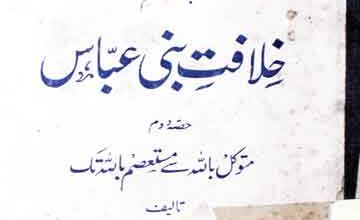 خلافتِ بنی عبّاس
حصّہ دوم
متوکل باللہ سے مستعصم باللہ تک
تالیف